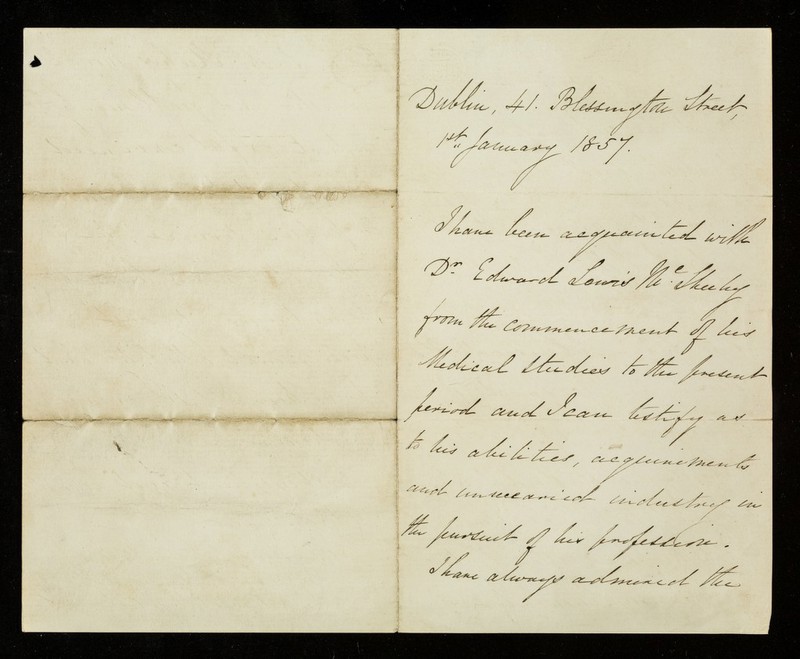 Dublin, 41. Blessington Street,
1st. January 1857.
I have been acquainted with
Dr. Edward Lewis Mc. Sheehy
from the commencement of his
Medical Studies to the present
period and I can testify as
to his abilities, acquirements
and unwearied industry in
the pursuit of his profession.
I have always admired the